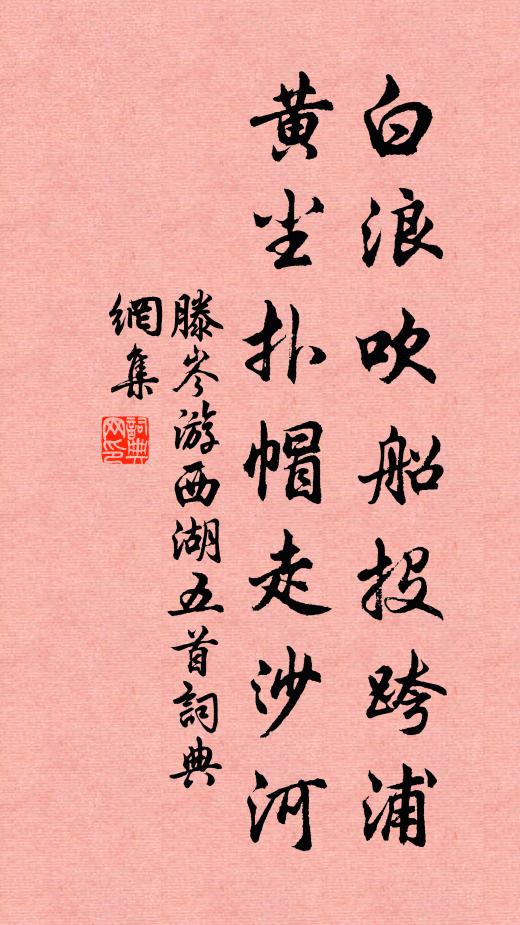 白浪吹船投跨浦
黄尘扑帽走沙河
滕岑游西湖五首詞典
網集
詞典网印